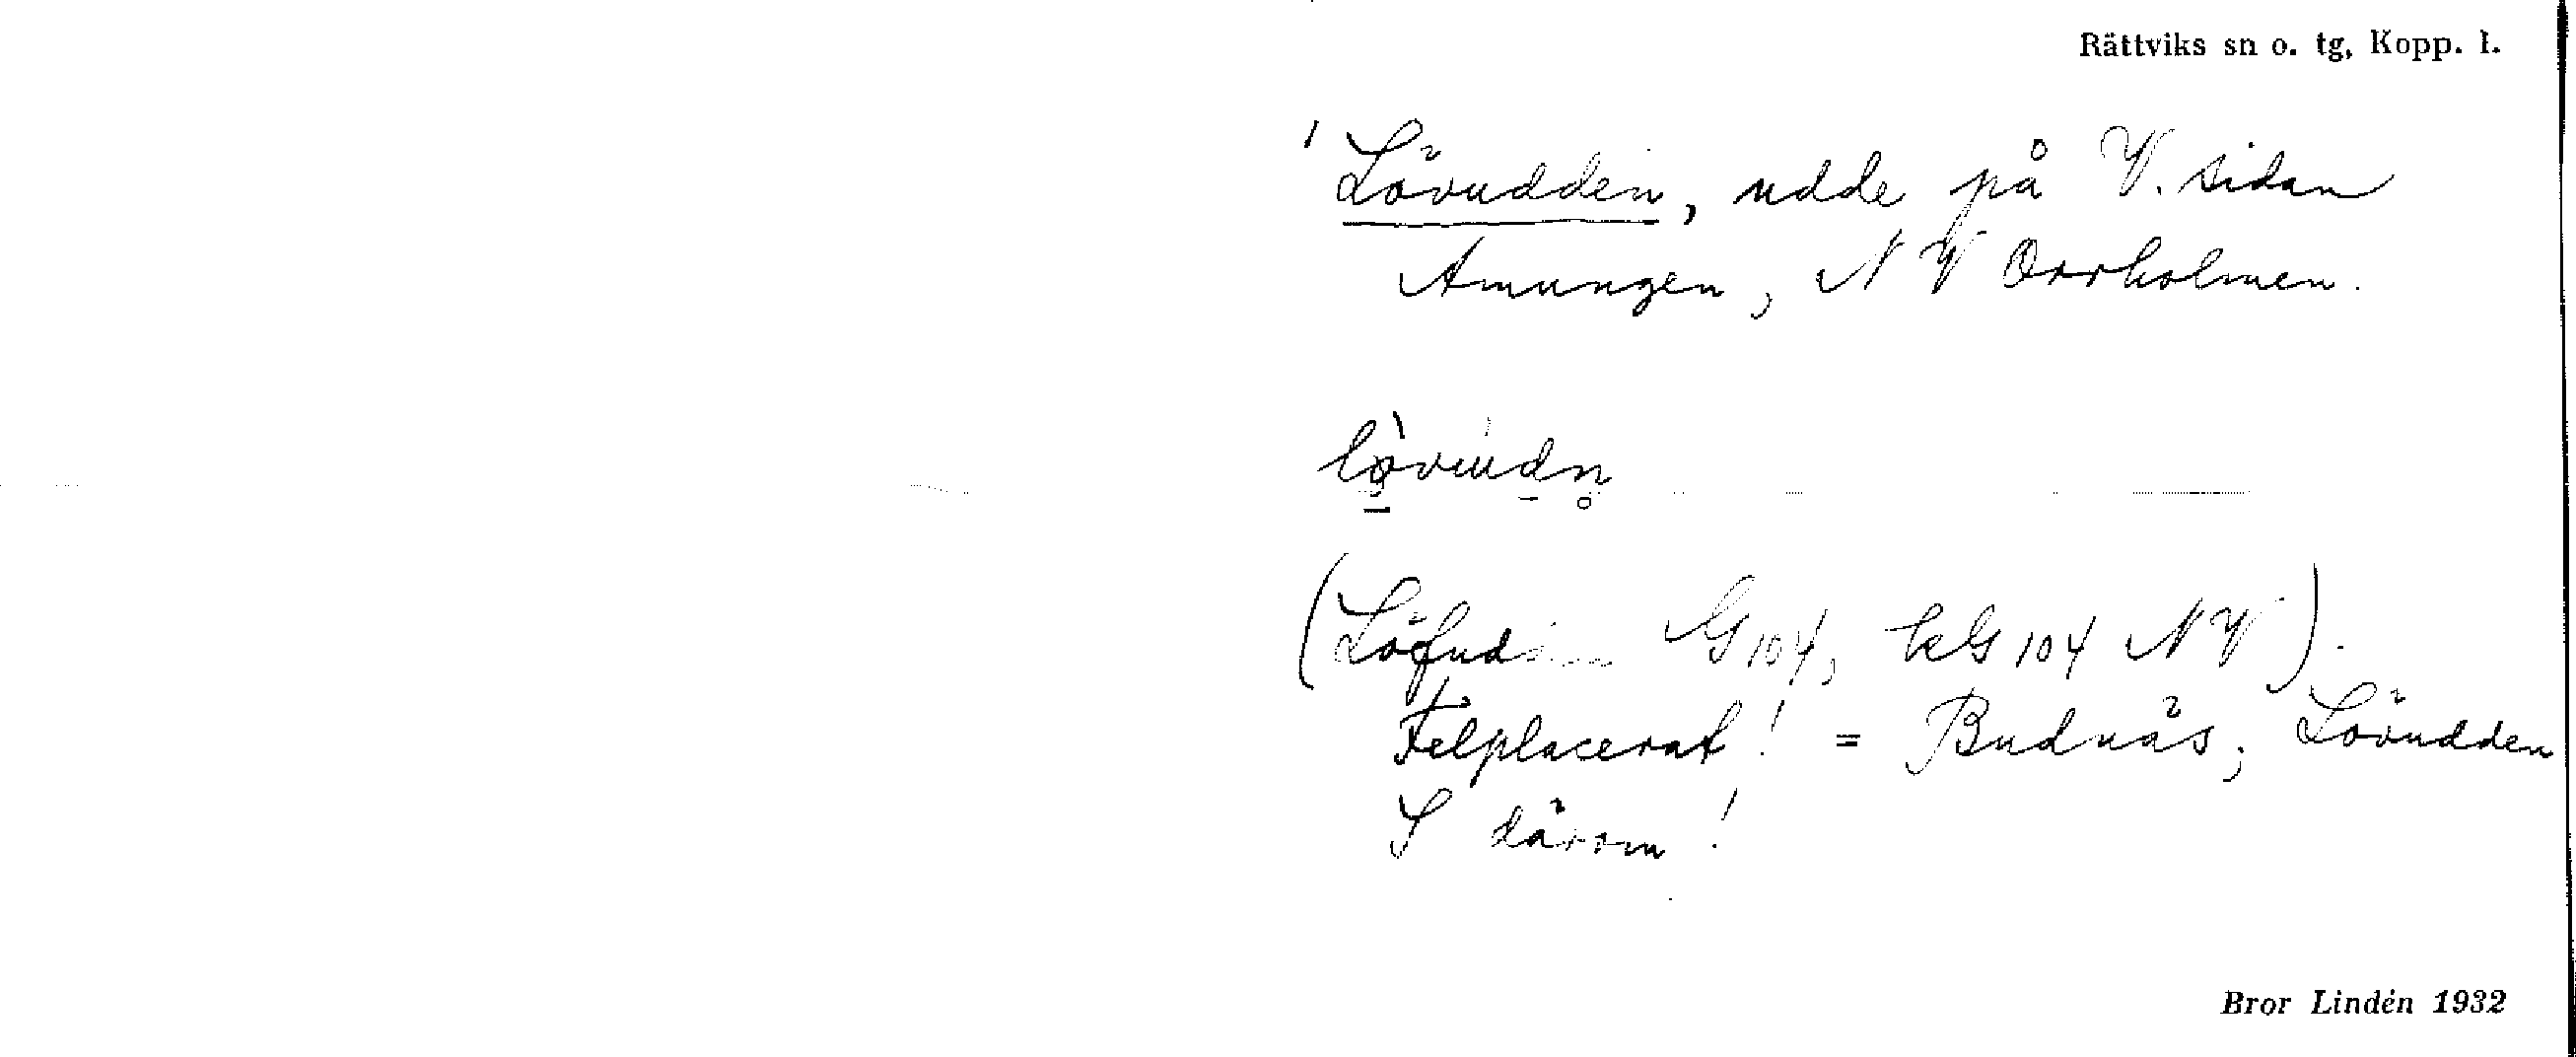 Rättviks sn o. tg, Kopp. l.
' Lövudden, udde på V. sidan
Amungen, N V Orrholmen.
(Löfudden G 104, G 104 N V).
Felplacerat! = Budnäs; Lövudden
S därom!
Bror Lindén 1932